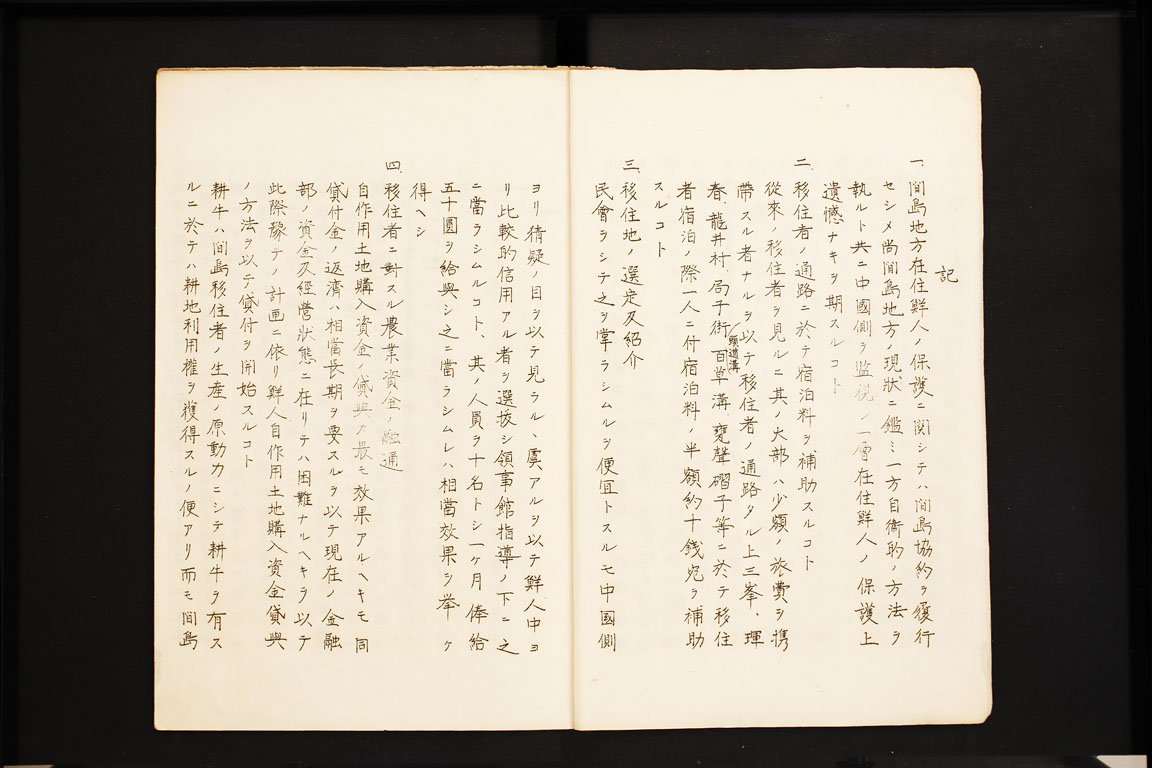 記
一、間島地方在住鮮人ノ保護ニ関シテハ間島協約ヲ履行
セシメ尚間島地方ノ現状ニ鑑ミ一方自衛的ノ方法ヲ
執ルト共ニ中國側ヲ監視シ一層在住鮮人ノ保護上
遺憾ナキヲ期スルコト
二、移住者ノ通路ニ於テ宿泊料ヲ補助スルコト
從來ノ移住者ヲ見ルニ其ノ大部ハ少額ノ旅費ヲ携
帶スル者ナルヲ以テ移住者ノ通路タル上三峯、琿
春、龍井村、局子街、頭道溝、百草溝、甕聲磖子等ニ於テ移住
者宿泊ノ際一人ニ付宿泊料ノ半額約十錢宛ヲ補助
スルコト
三、移住地ノ選定及紹介
民會ヲシテ之ヲ掌ラシムルヲ便宜トスルモ中國側
ヨリ猜疑ノ目ヲ以テ見ラルヽ虞アルヲ以テ鮮人中ヨ
リ比較的信用アル者ヲ選抜シ領事館指導ノ下ニ之
ニ當ラシムルコト、其ノ人員ヲ十名トシ一ケ月俸給
五十圓ヲ給與シ之ニ當ラシムレハ相當效果ヲ挙ケ
得ヘシ
四、移住者ニ對スル農業資金ノ融通
自作用土地購入資金ノ貸與カ最モ效果アルヘキモ同
貸付金ノ返濟ハ相當長期ヲ要スルヲ以テ現在ノ金融
部ノ資金及經營狀態ニ在リテハ困難ナルヘキヲ以テ
此際豫テノ計画ニ依リ鮮人自作用土地購入資金貸與
ノ方法ヲ以テ貸付ヲ開始スルコト
耕牛ハ間島移住者ノ生産ノ原動力ニシテ耕牛ヲ有ス
ルニ於テハ耕地利用權ヲ獲得スルノ便アリ而モ間島